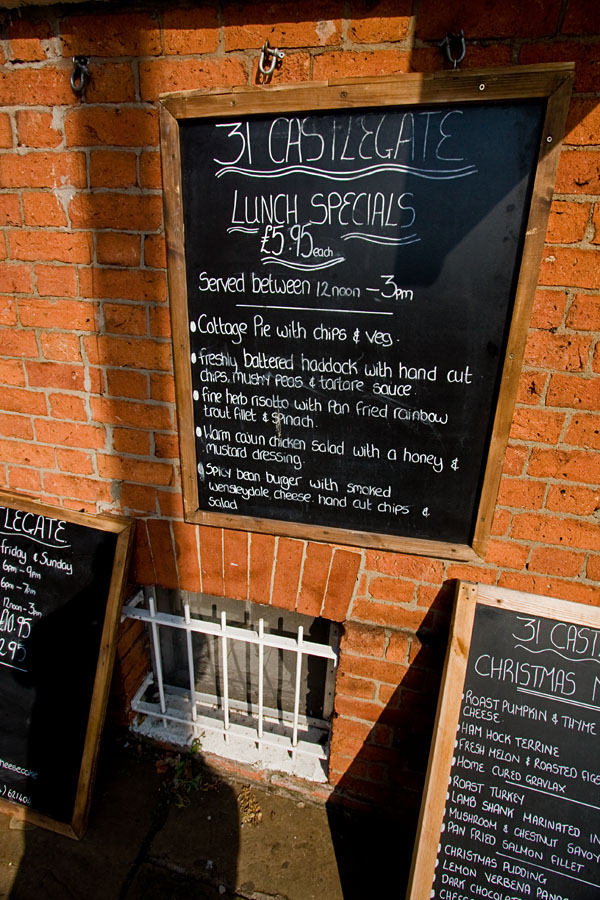 31 CASTLEGATE
LUNCH SPECIALS
£5.95 each
Served between 12noon – 3pm
• Cottage Pie with chips & veg.
• freshly battered haddock with hand cut
chips, mushy peas & tartare sauce.
• fine herb risotto with Pan fried rainbow
trout fillet & spinach.
• Warm cajun chicken salad with a honey &
mustard dressing.
• Spicy bean burger with smoked
wensleydale cheese. hand cut chips &
salad
LEGATE
friday & Sunday
6pm - 9pm
6pm - 7pm
12noon - 3pm
£10.95
2.95
cheesecake
621604
31 CAST
CHRISTMAS M
• ROAST PUMPKIN & THYME
CHEESE.
• HAM HOCK TERRINE
• FRESH MELON & ROASTED FIGS
• HOME CURED GRAVLAX
• ROAST TURKEY
• LAMB SHANK MARINATED IN
• MUSHROOM & CHESTNUT SAVOY
• PAN FRIED SALMON FILLET
• CHRISTMAS PUDDING
• LEMON VERBENA PANA
• DARK CHOCOLATE
• CHEESE